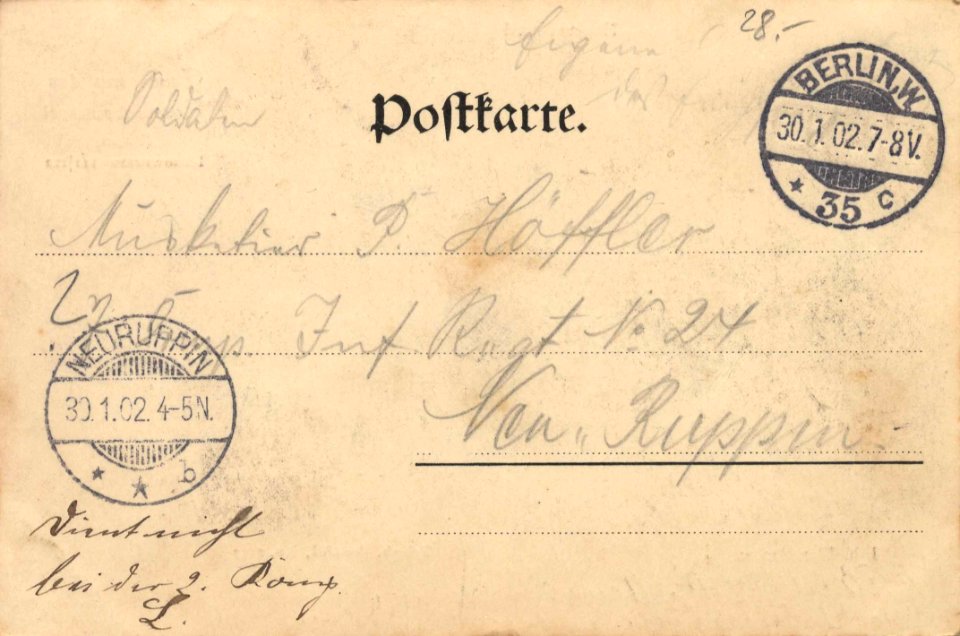 28.-
Eigene
Soldaten
Postkarte.
BERLIN, W.
30. 1. 02. 7-8 V.
* 35 c
Musketier P. Höffler
2
Inf Regt No 24
Neu-Ruppin
NEURUPPIN
30. 1. 02. 4-5 N.
* * b
Dient nicht
bei der 2. Komp.
L.